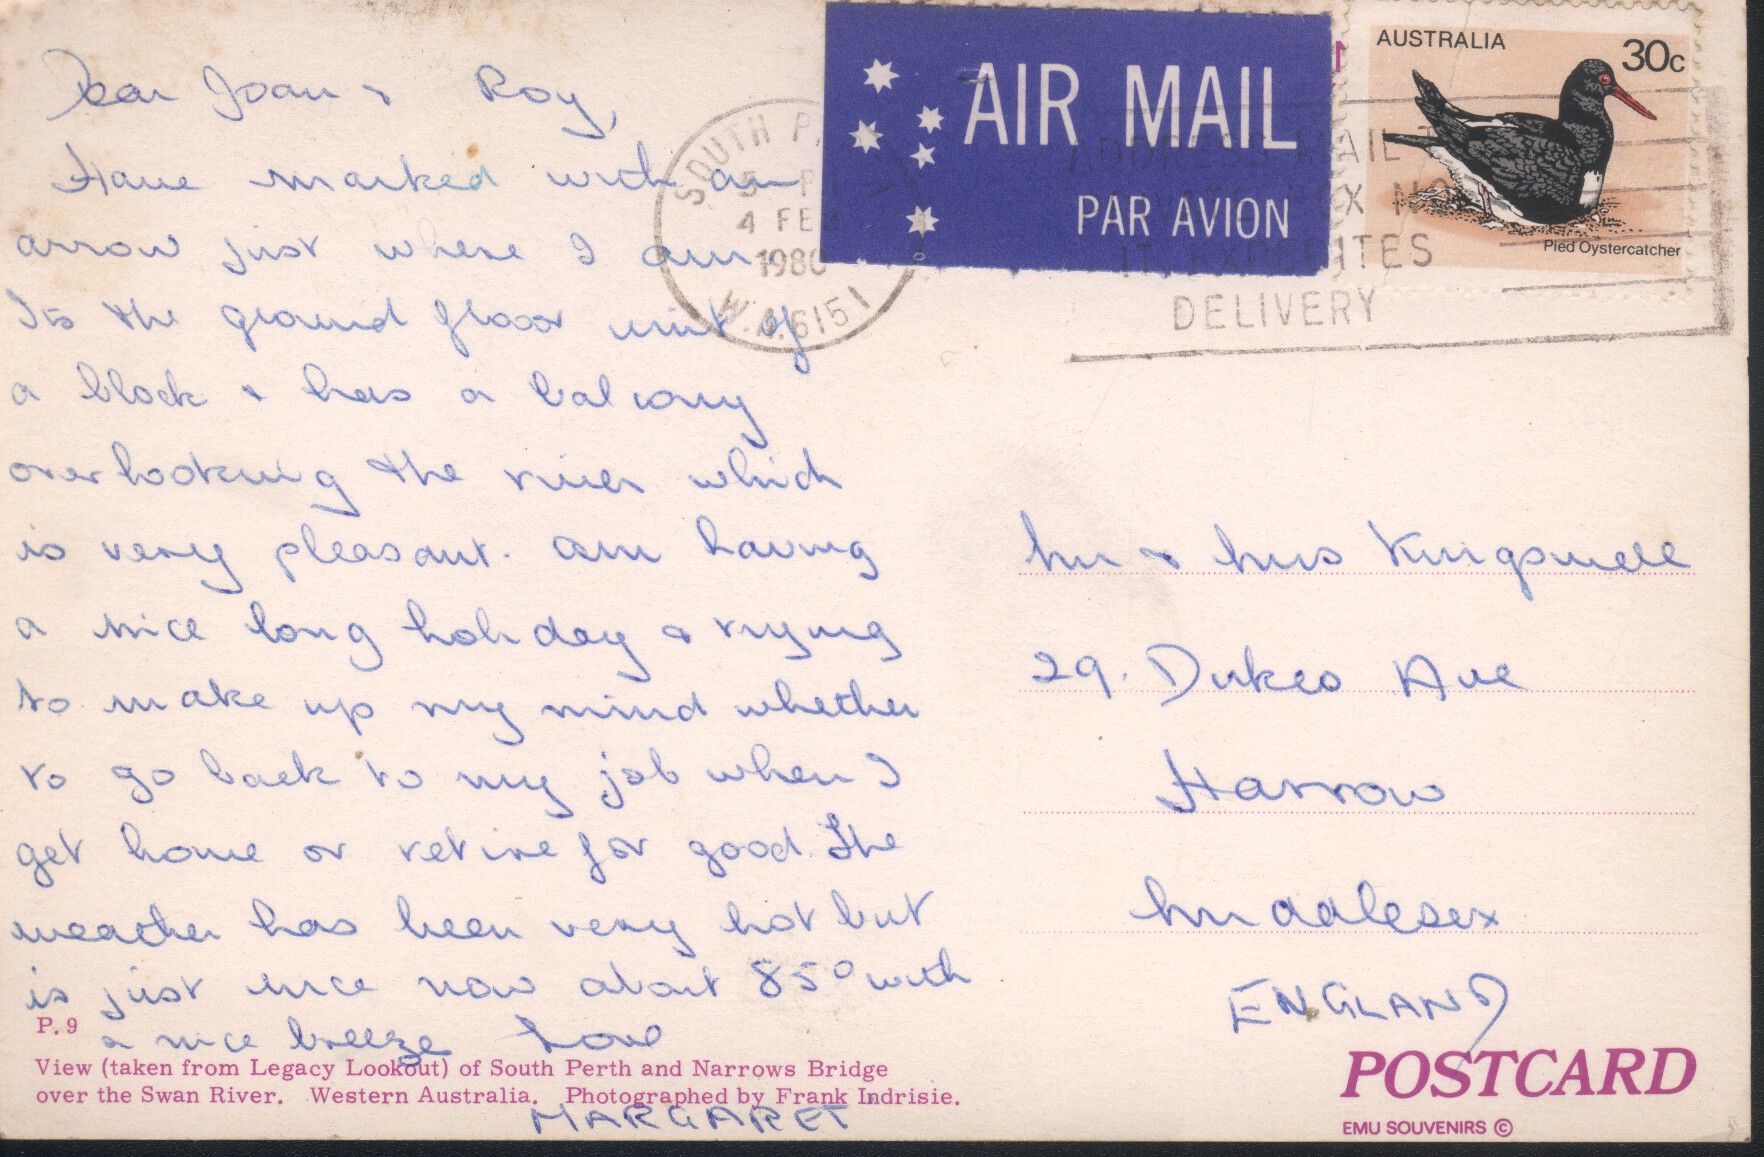 Dear Joan & Roy,
Have marked with an
arrow just where I am.
Its the ground floor unit of
a block & has a balcony
overlooking the river which
is very pleasant. Am having
a nice long holiday & trying
to make up my mind whether
to go back to my job when I
get home or retire for good. The
weather has been very hot but
is just nice now about 85° with
a nice breeze Love
MARGARET
P. 9
View (taken from Legacy Lookout) of South Perth and Narrows Bridge
over the Swan River. Western Australia. Photographed by Frank Indrisie.
SOUTH P
5 P
4 FEB
1980
W.A. 6151
AIR MAIL
PAR AVION
ADDRESS MAIL
BOX NO
IT EXPEDITES
DELIVERY
AUSTRALIA 30c
Pied Oystercatcher
Mr & Mrs Kingswell
29. Dukes Ave
Harrow
Middlesex
ENGLAND
POSTCARD
EMU SOUVENIRS ©